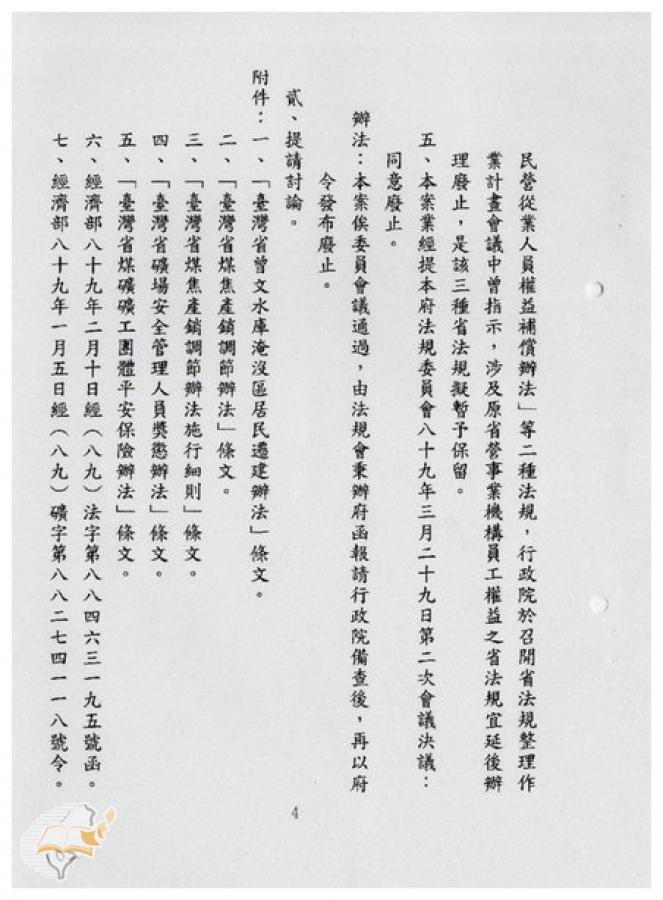 民營從業人員權益補償辦法」等二種法規，行政院於召開省法規整理作
業計畫會議中曾指示，涉及原省營事業機構員工權益之省法規宜延後辦
理廢止，是該三種省法規擬暫予保留。
五、本案業經提本府法規委員會八十九年三月二十九日第二次會議決議：
同意廢止。
辦法：本案俟委員會議通過，由法規會秉辦府函報請行政院備查後，再以府
令發布廢止。
貳、提請討論。
附件：一、「臺灣省曾文水庫淹沒區居民遷建辦法」條文。
二、「臺灣省煤焦產銷調節辦法」條文。
三、「臺灣省煤焦產銷調節辦法施行細則」條文。
四、「臺灣省礦場安全管理人員獎懲辦法」條文。
五、「臺灣省煤礦礦工團體平安保險辦法」條文。
六、經濟部八十九年二月十日經（八九）法字第八八四六三一九五號函。
七、經濟部八十九年一月五日經（八九）礦字第八八二七四一一八號令。
4